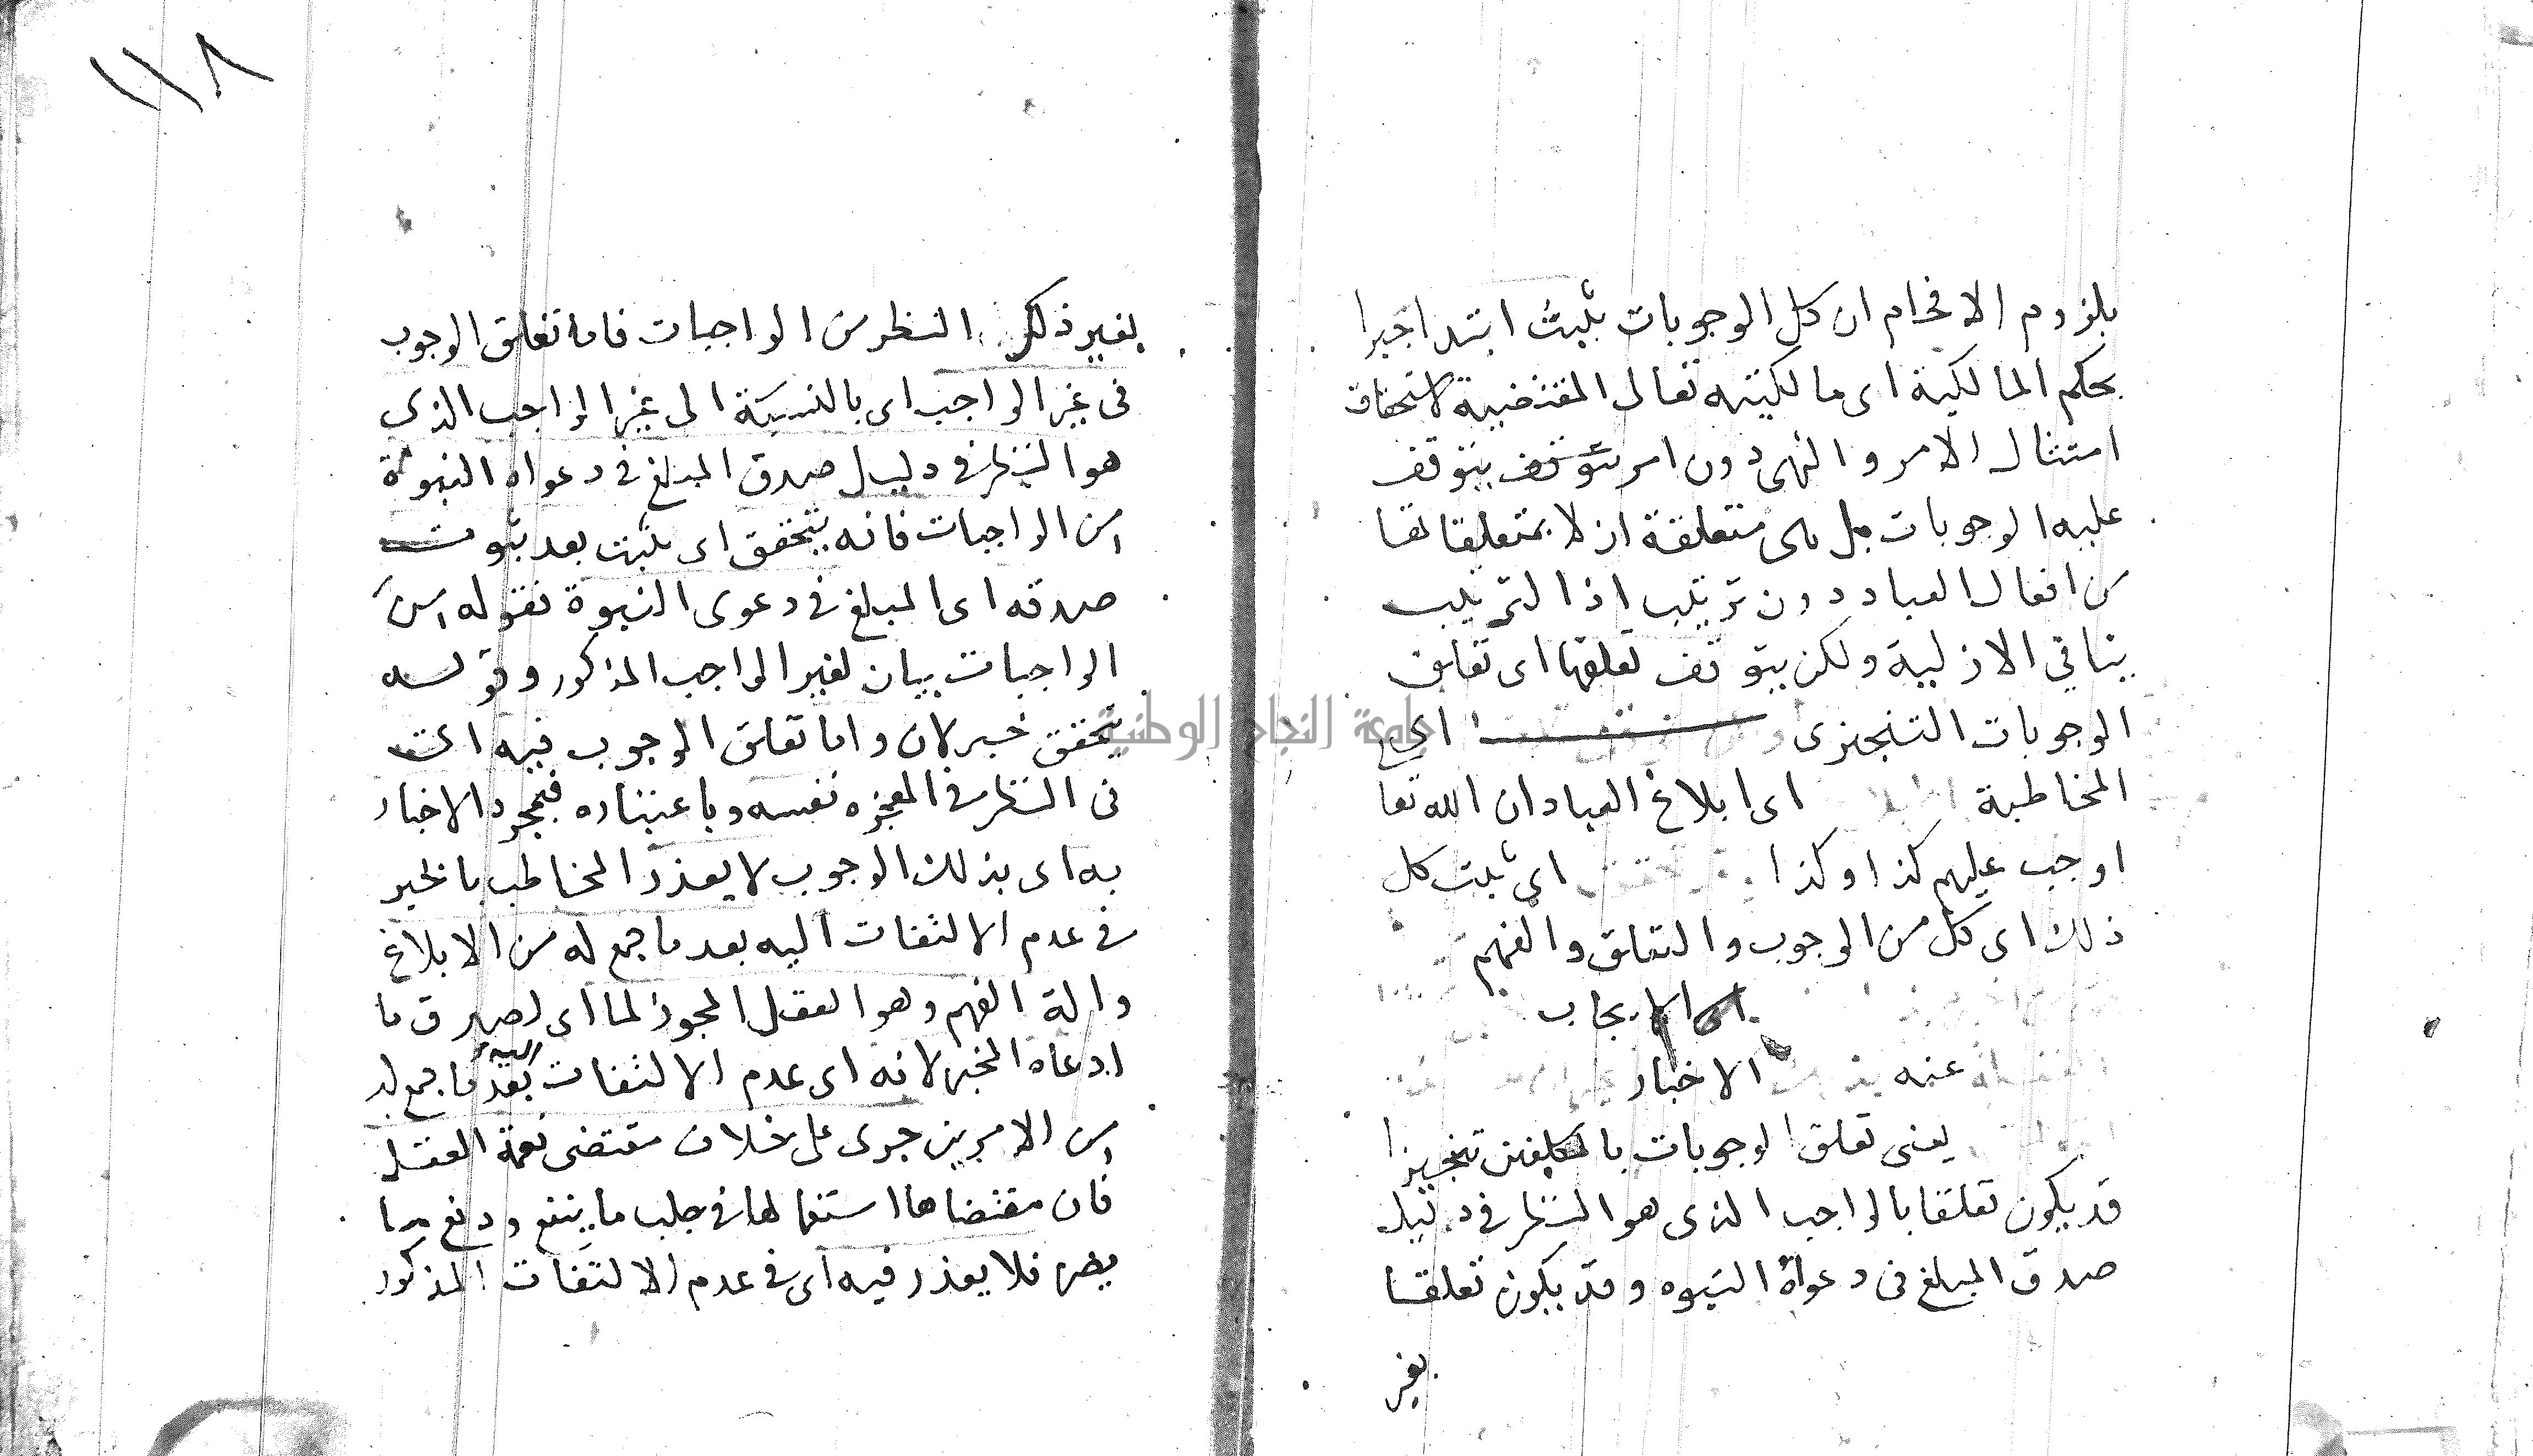 بلزوم الافحام ان كل الوجوبات يثبت ابتدا جبرا
بحكم المالكية اى مالكيته تعالى المقتضية لاستحقاق
امتثال الامر والنهى دون امر يتوقف
عليه الوجوبات بل هى متعلقة ازلا بمتعلقاتها
من افعال العباد دون ترتيب اذ الترتيب
ينافي الازلية ولكن يتوقف تعلقها اى تعلق
الوجوبات التنجيزى اى
المخاطبة اى ابلاغ العباد ان الله تعا
اوجب عليهم كذا وكذا اى ثبت كل
ذلك اى كل من الوجوب والتعلق والفهم
الايجاب
عنه الاخبار
يعنى تعلق الوجوبات بالمكلفين تنجيزا
قد يكون تعلقا بالواجب الذى هو النظر فى دليل
صدق المبلغ فى دعواة النبوه وقد يكون تعلقا
بغير
١١٨
بغير ذلك النظر من الواجبات فاما تعلق الوجوب
فى غير الواجب اى بالنسبة الى غير الواجب الذى
هو النظر فى دليل صدق المبلغ فى دعواه النبوة
من الواجبات فانه يتحقق اى يثبت بعد ثبوت
صدقه اى المبلغ فى دعوى النبوة فقوله من
الواجبات بيان لغير الواجب المذكور وقوله
يتحقق خبر لان واما تعلق الوجوب فيه اى
فى النظر فى المعجزه نفسه وباعتباره فبمجرد الاخبار
به اى بذلك الوجوب لا يعذر المخاطب بالخبر
فى عدم الالتفات اليه بعد ما جمع له من الابلاغ
والة الفهم وهو العقل المجوز لما اى لصدق ما
ادعاه المخبر لانه اى عدم الالتفات اليه بعد ما جمع له
من الامرين جرى على خلاف مقتضى نعمة العقل
فان مقتضاها استعمالها فى جلب ما ينفع ودفع ما
يضر فلا يعذر فيه اى فى عدم الالتفات المذكور
جامعة النجاح الوطنية